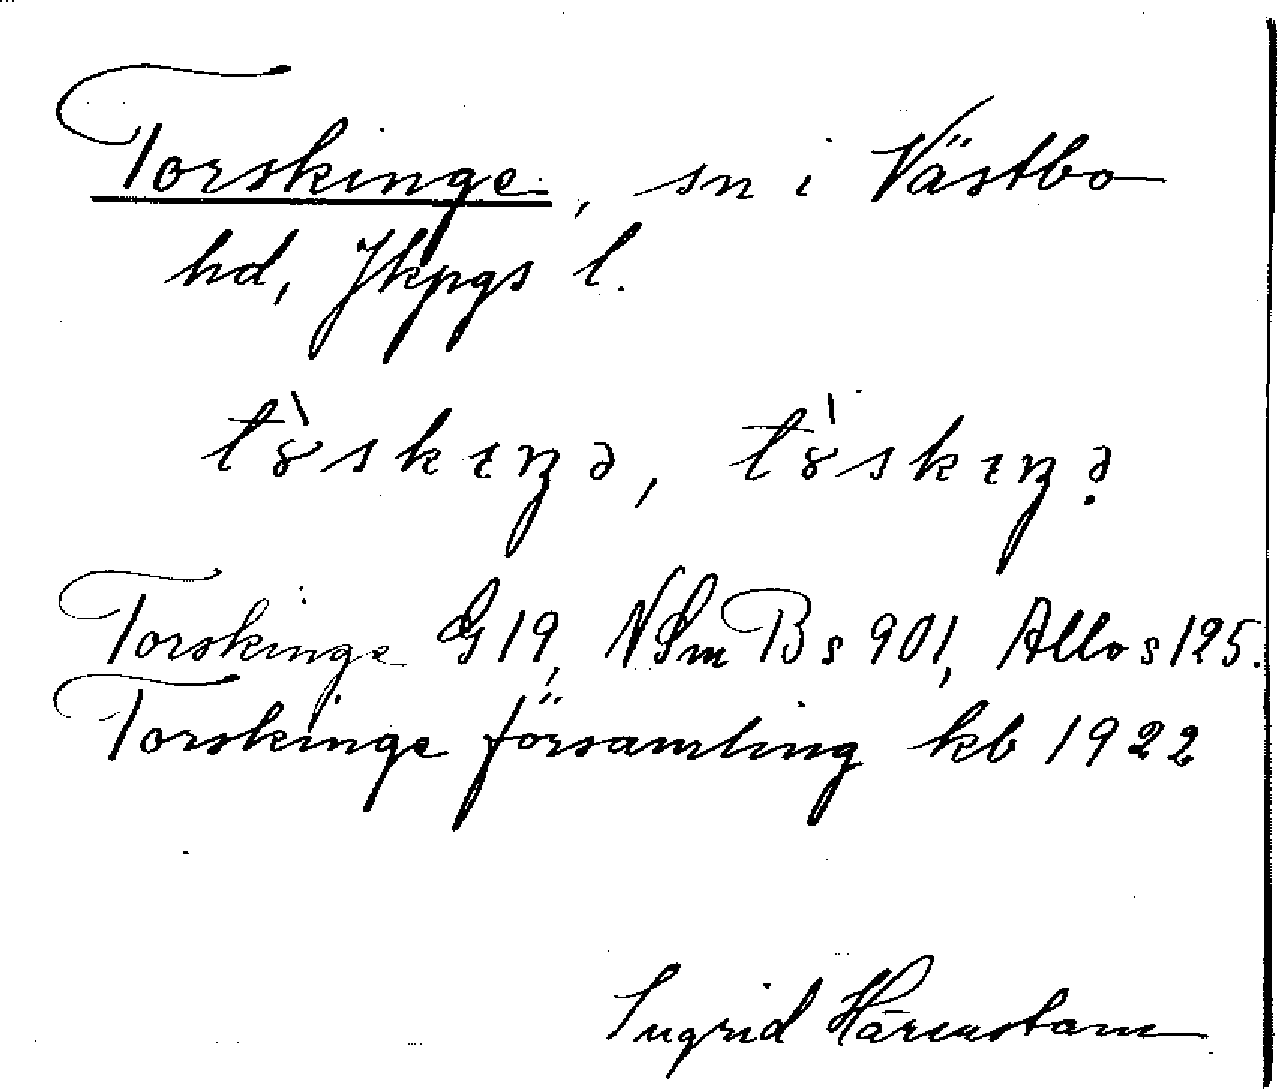 Torskinge, sn i Västbo
hd, Jkpgs l.
Torskinge G 19, NSmB s 901, Allo s 125.
Torskinge församling kb 1922
Ingrid Härenstam